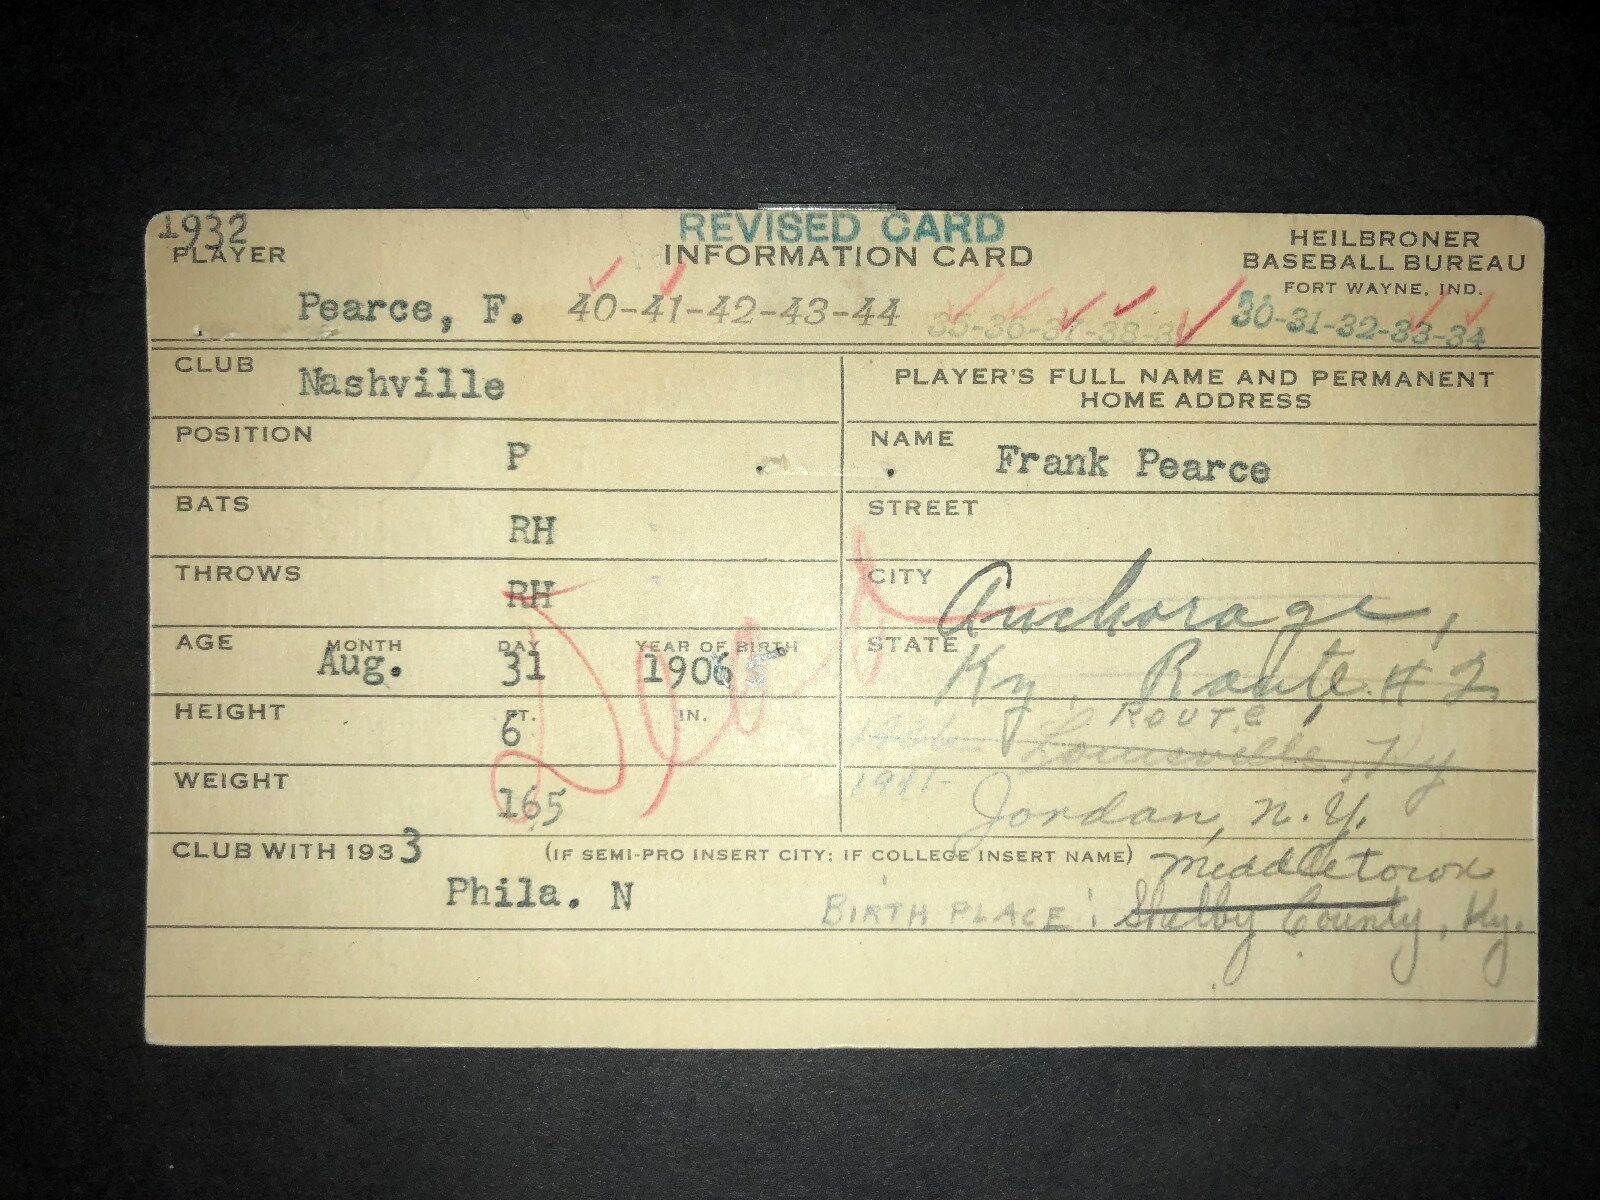 1932
REVISED CARD
PLAYER INFORMATION CARD
HEILBRONER
BASEBALL BUREAU
FORT WAYNE, IND.
Pearce, F. 40-41-42-43-44 35-36-37-38-3 30-31-32-33-34
CLUB Nashville
PLAYER'S FULL NAME AND PERMANENT
HOME ADDRESS
POSITION P
NAME Frank Pearce
BATS RH
STREET
THROWS RH
CITY Anchorage,
AGE MONTH Aug. DAY 31 YEAR OF BIRTH 1906 5
STATE Ky. Route #2
HEIGHT FT. 6 IN.
ROUTE 1
Louisville, Ky
WEIGHT 165
1941- Jordan, N.Y.
CLUB WITH 1933 (IF SEMI-PRO INSERT CITY; IF COLLEGE INSERT NAME)
Middletown
Phila. N
BIRTH PLACE: Shelby County, Ky.